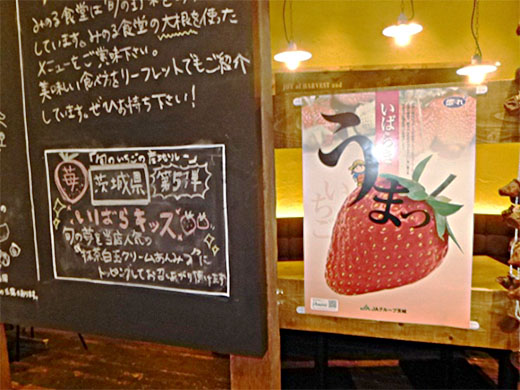 みのる食堂は旬の野菜を使った
しています。みのる食堂の大根を使った
メニューをご賞味下さい。
美味しい食べ方をリーフレットでもご紹介
しています。ぜひお持ち下さい!
「旬のいちごの産地リレー」
苺 茨城県 第5弾
いばらキッス
旬の苺を当店人気の
"抹茶白玉クリームあんみつ"に
トッピングしてお召しあがり頂けます
いばらきの
うまっ
いちご
JAグループ茨城